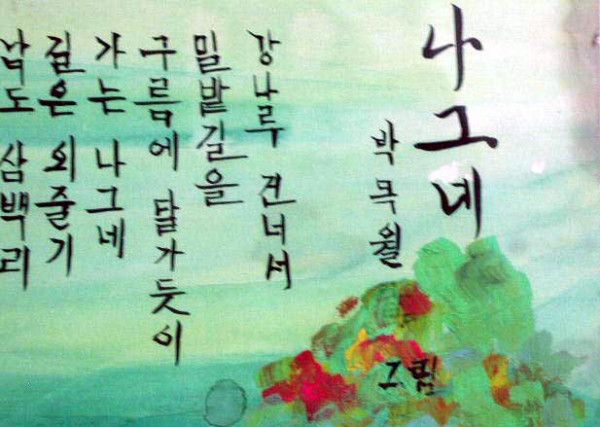 나그네
박목월
강나루 건너서
밀밭길을
구름에 달가듯이
가는 나그네
길은 외줄기
남도 삼백리
그림